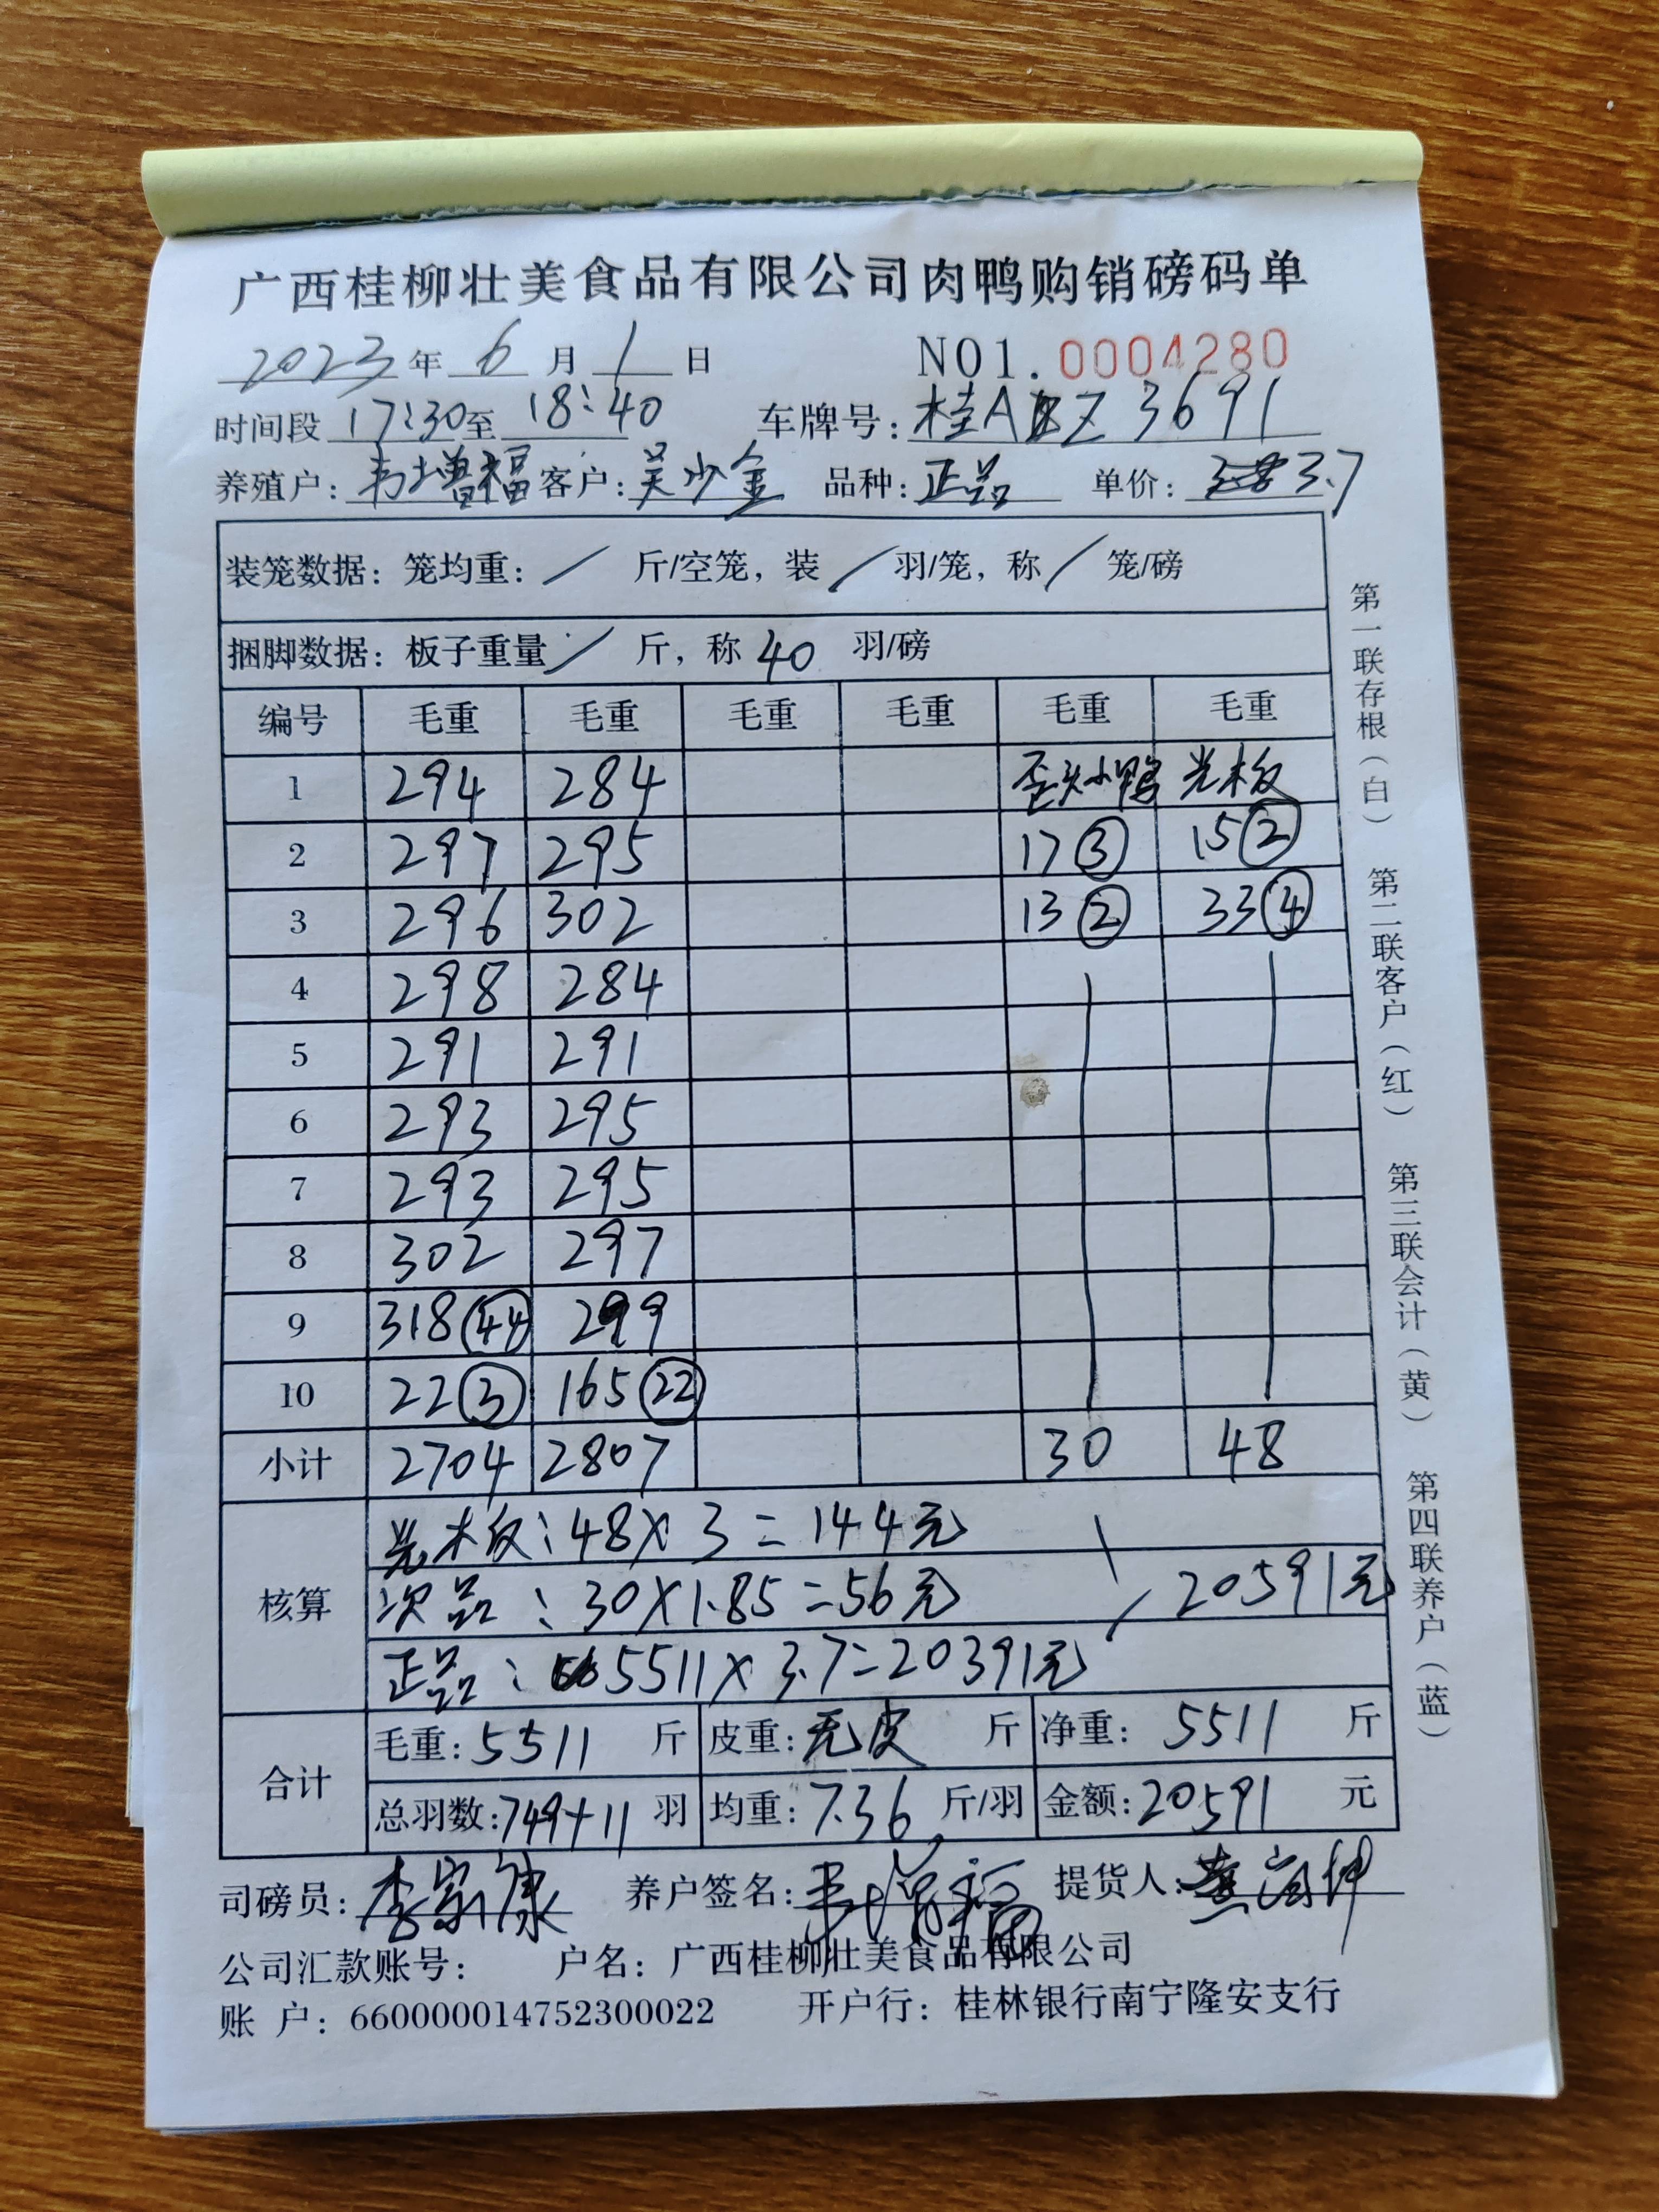 广西桂柳壮美食品有限公司肉鸭购销磅码单
2023年 6 月 1 日 NO1.0004280
时间段 17:30至 18:40 车牌号: 桂A Z3691
养殖户: 韦增福 客户: 吴少金 品种: 正品 单价: 3.7
装笼数据: 笼均重: / 斤/空笼, 装 / 羽/笼, 称 / 笼/磅
捆脚数据: 板子重量 / 斤, 称 40 羽/磅
编号 毛重 毛重 毛重 毛重 毛重 毛重
1 294 284 歪头小鸭 光木板
2 297 295 17③ 15②
3 296 302 13② 33④
4 298 284
5 291 291
6 293 295
7 293 295
8 302 297
9 318㊹ 299
10 22③ 165㉒
小计 2704 2807 30 48
核算
光木板: 48×3=144元
次品: 30×1.85=56元 20591元
正品: 5511×3.7=20391元
合计
毛重: 5511 斤 皮重: 无皮 斤 净重: 5511 斤
总羽数: 749+11 羽 均重: 7.36 斤/羽 金额: 20591 元
司磅员: 李家康 养户签名: 韦增福 提货人: 黄
公司汇款账号: 户名: 广西桂柳壮美食品有限公司
账 户: 660000014752300022 开户行: 桂林银行南宁隆安支行
第一联存根(白) 第二联客户(红) 第三联会计(黄) 第四联养户(蓝)